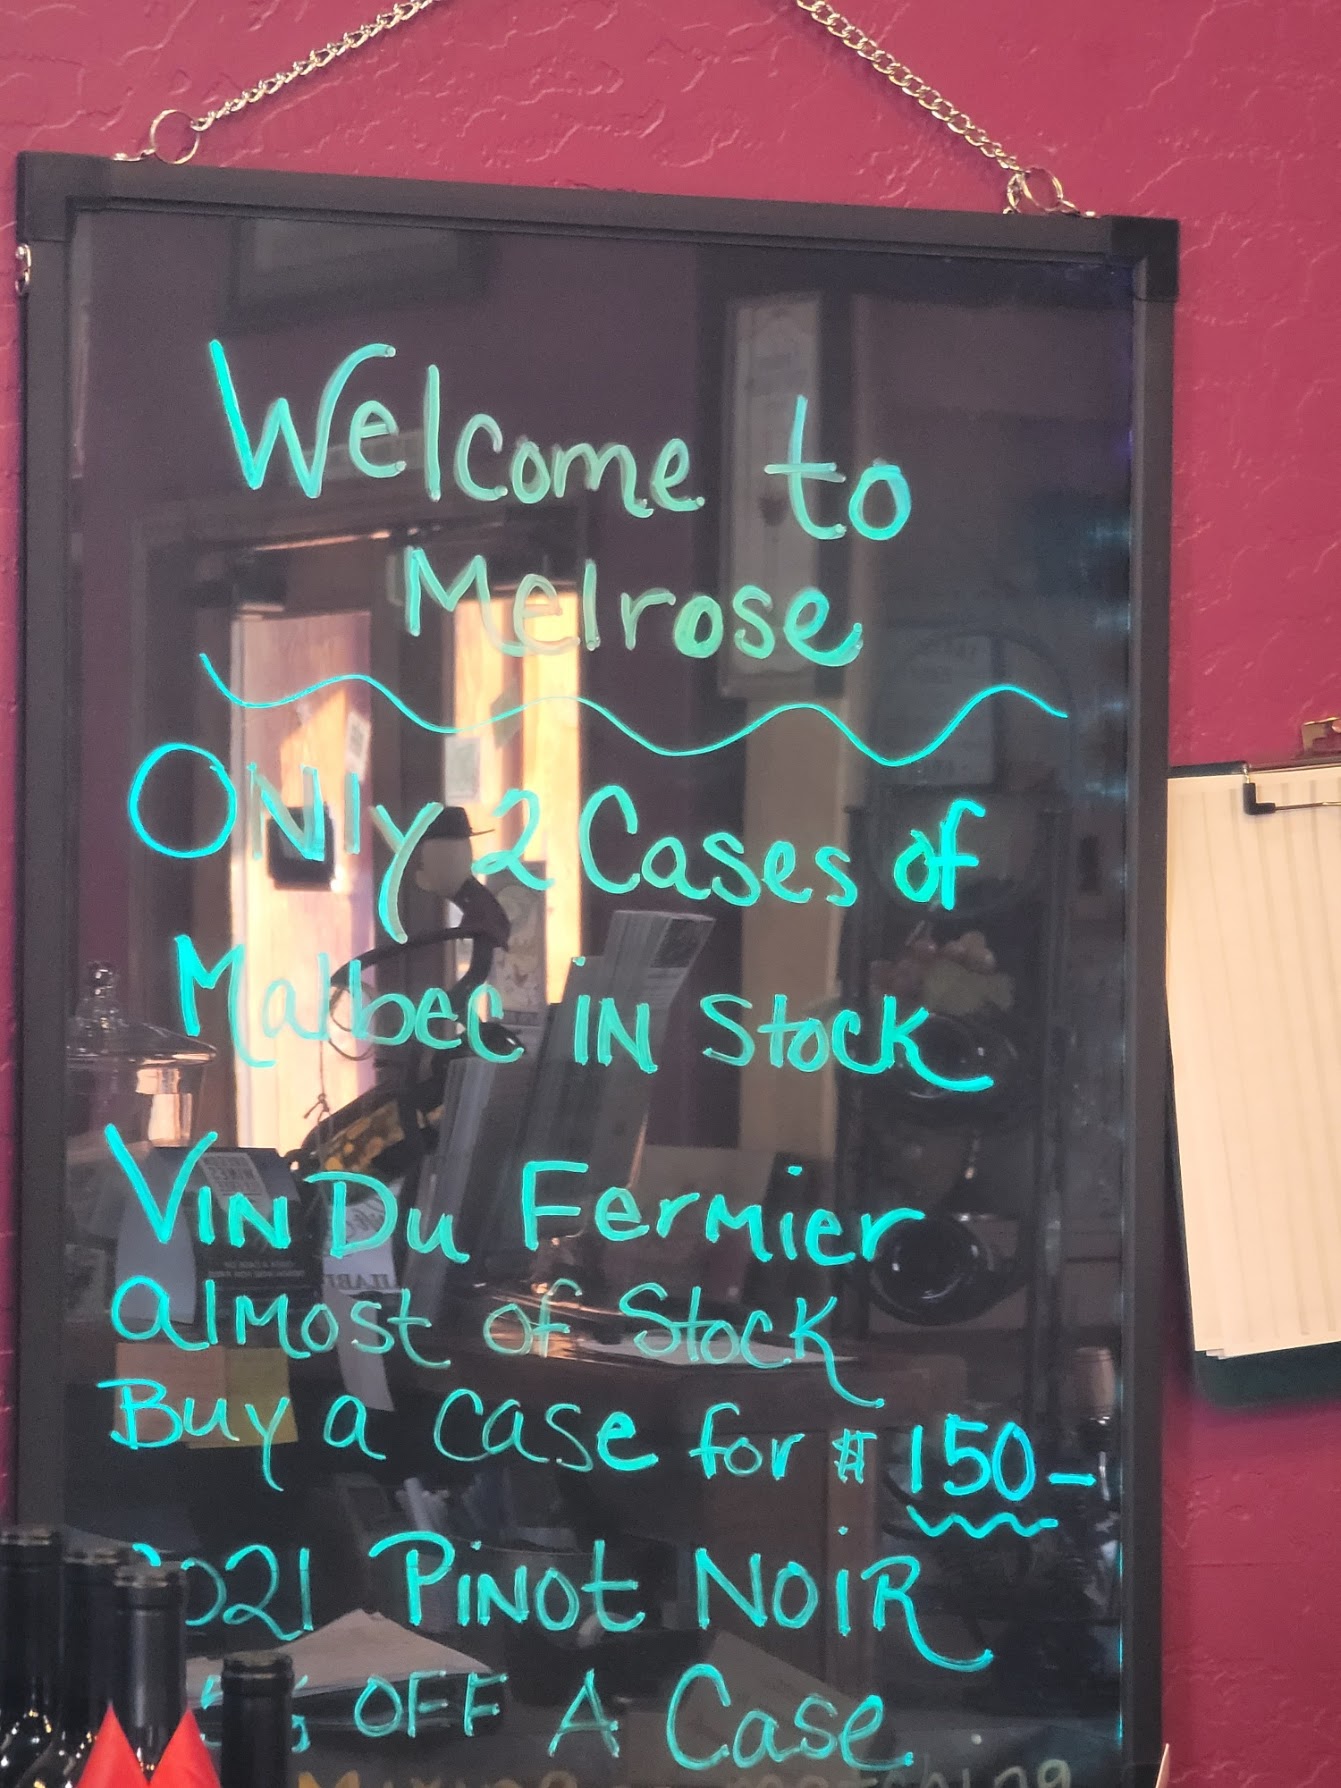 Welcome to
Melrose
ONly 2 Cases of
Malbec iN Stock
VIN Du Fermier
almost of Stock
Buy a case for $150-
2021 PiNot NoiR
OFF A Case